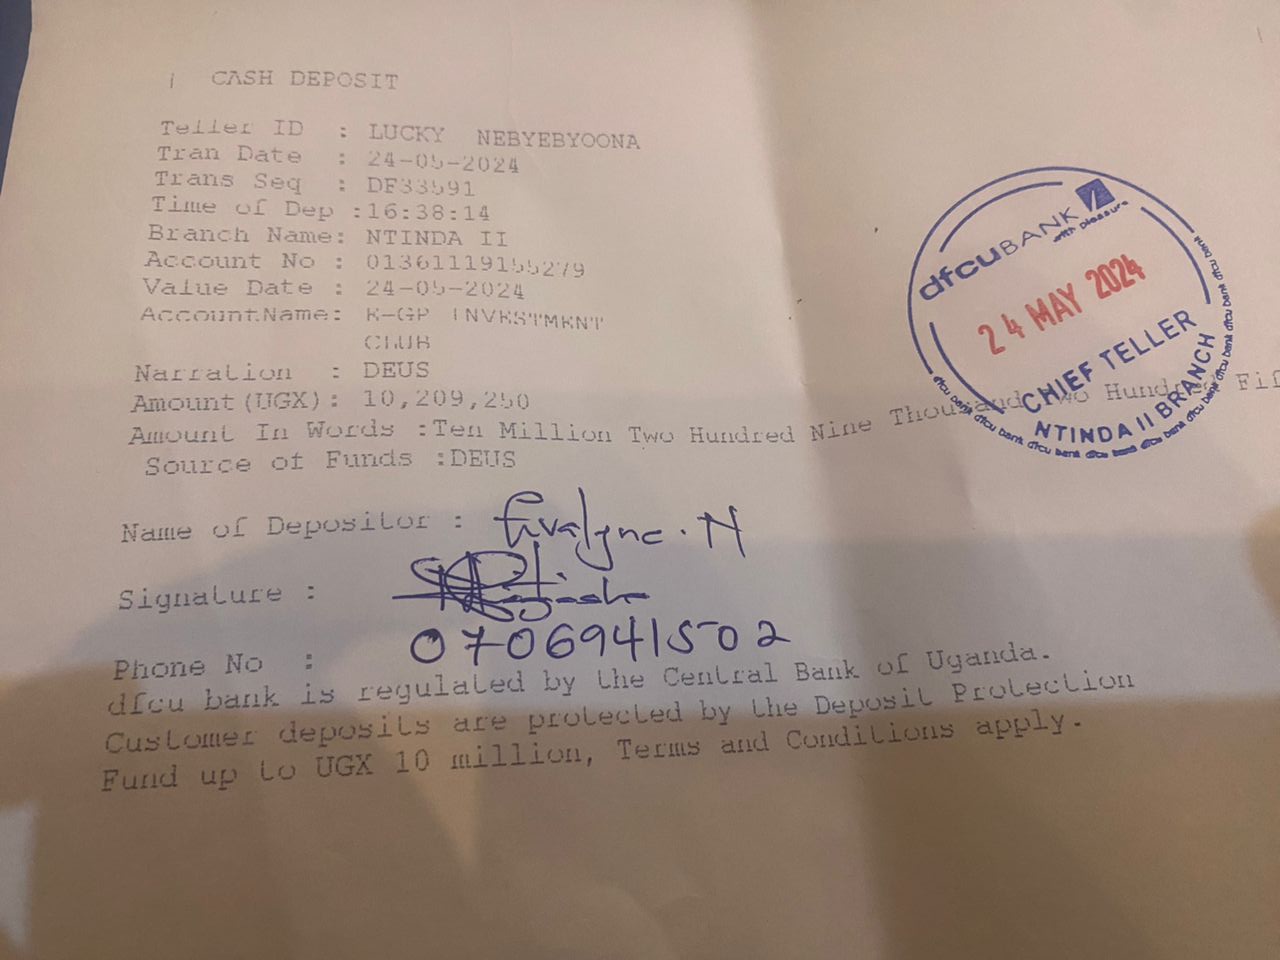 CASH DEPOSIT
Teller ID : LUCKY NEBYEBYOONA
Tran Date : 24-05-2024
Trans Seq : DF33591
Time of Dep :16:38:14
Branch Name: NTINDA II
Account No : 01361119155279
Value Date : 24-05-2024
Account Name: K-GP INVESTMENT
CLUB
Narration : DEUS
Amount (UGX): 10,209,250
Amount In Words :Ten Million Two Hundred Nine Thousand Two Hundred Fif
Source of Funds :DEUS
Name of Depositor : Evalyne . N
Signature :
0706941502
Phone No :
dfcu bank is regulated by the Central Bank of Uganda.
Customer deposits are protected by the Deposit Protection
Fund up to UGX 10 million, Terms and Conditions apply.
dfcu BANK
with pleasure
24 MAY 2024
CHIEF TELLER
NTINDA II BRANCH
dfcu bank dfcu bank dfcu bank dfcu bank dfcu bank dfcu bank dfcu bank dfcu bank